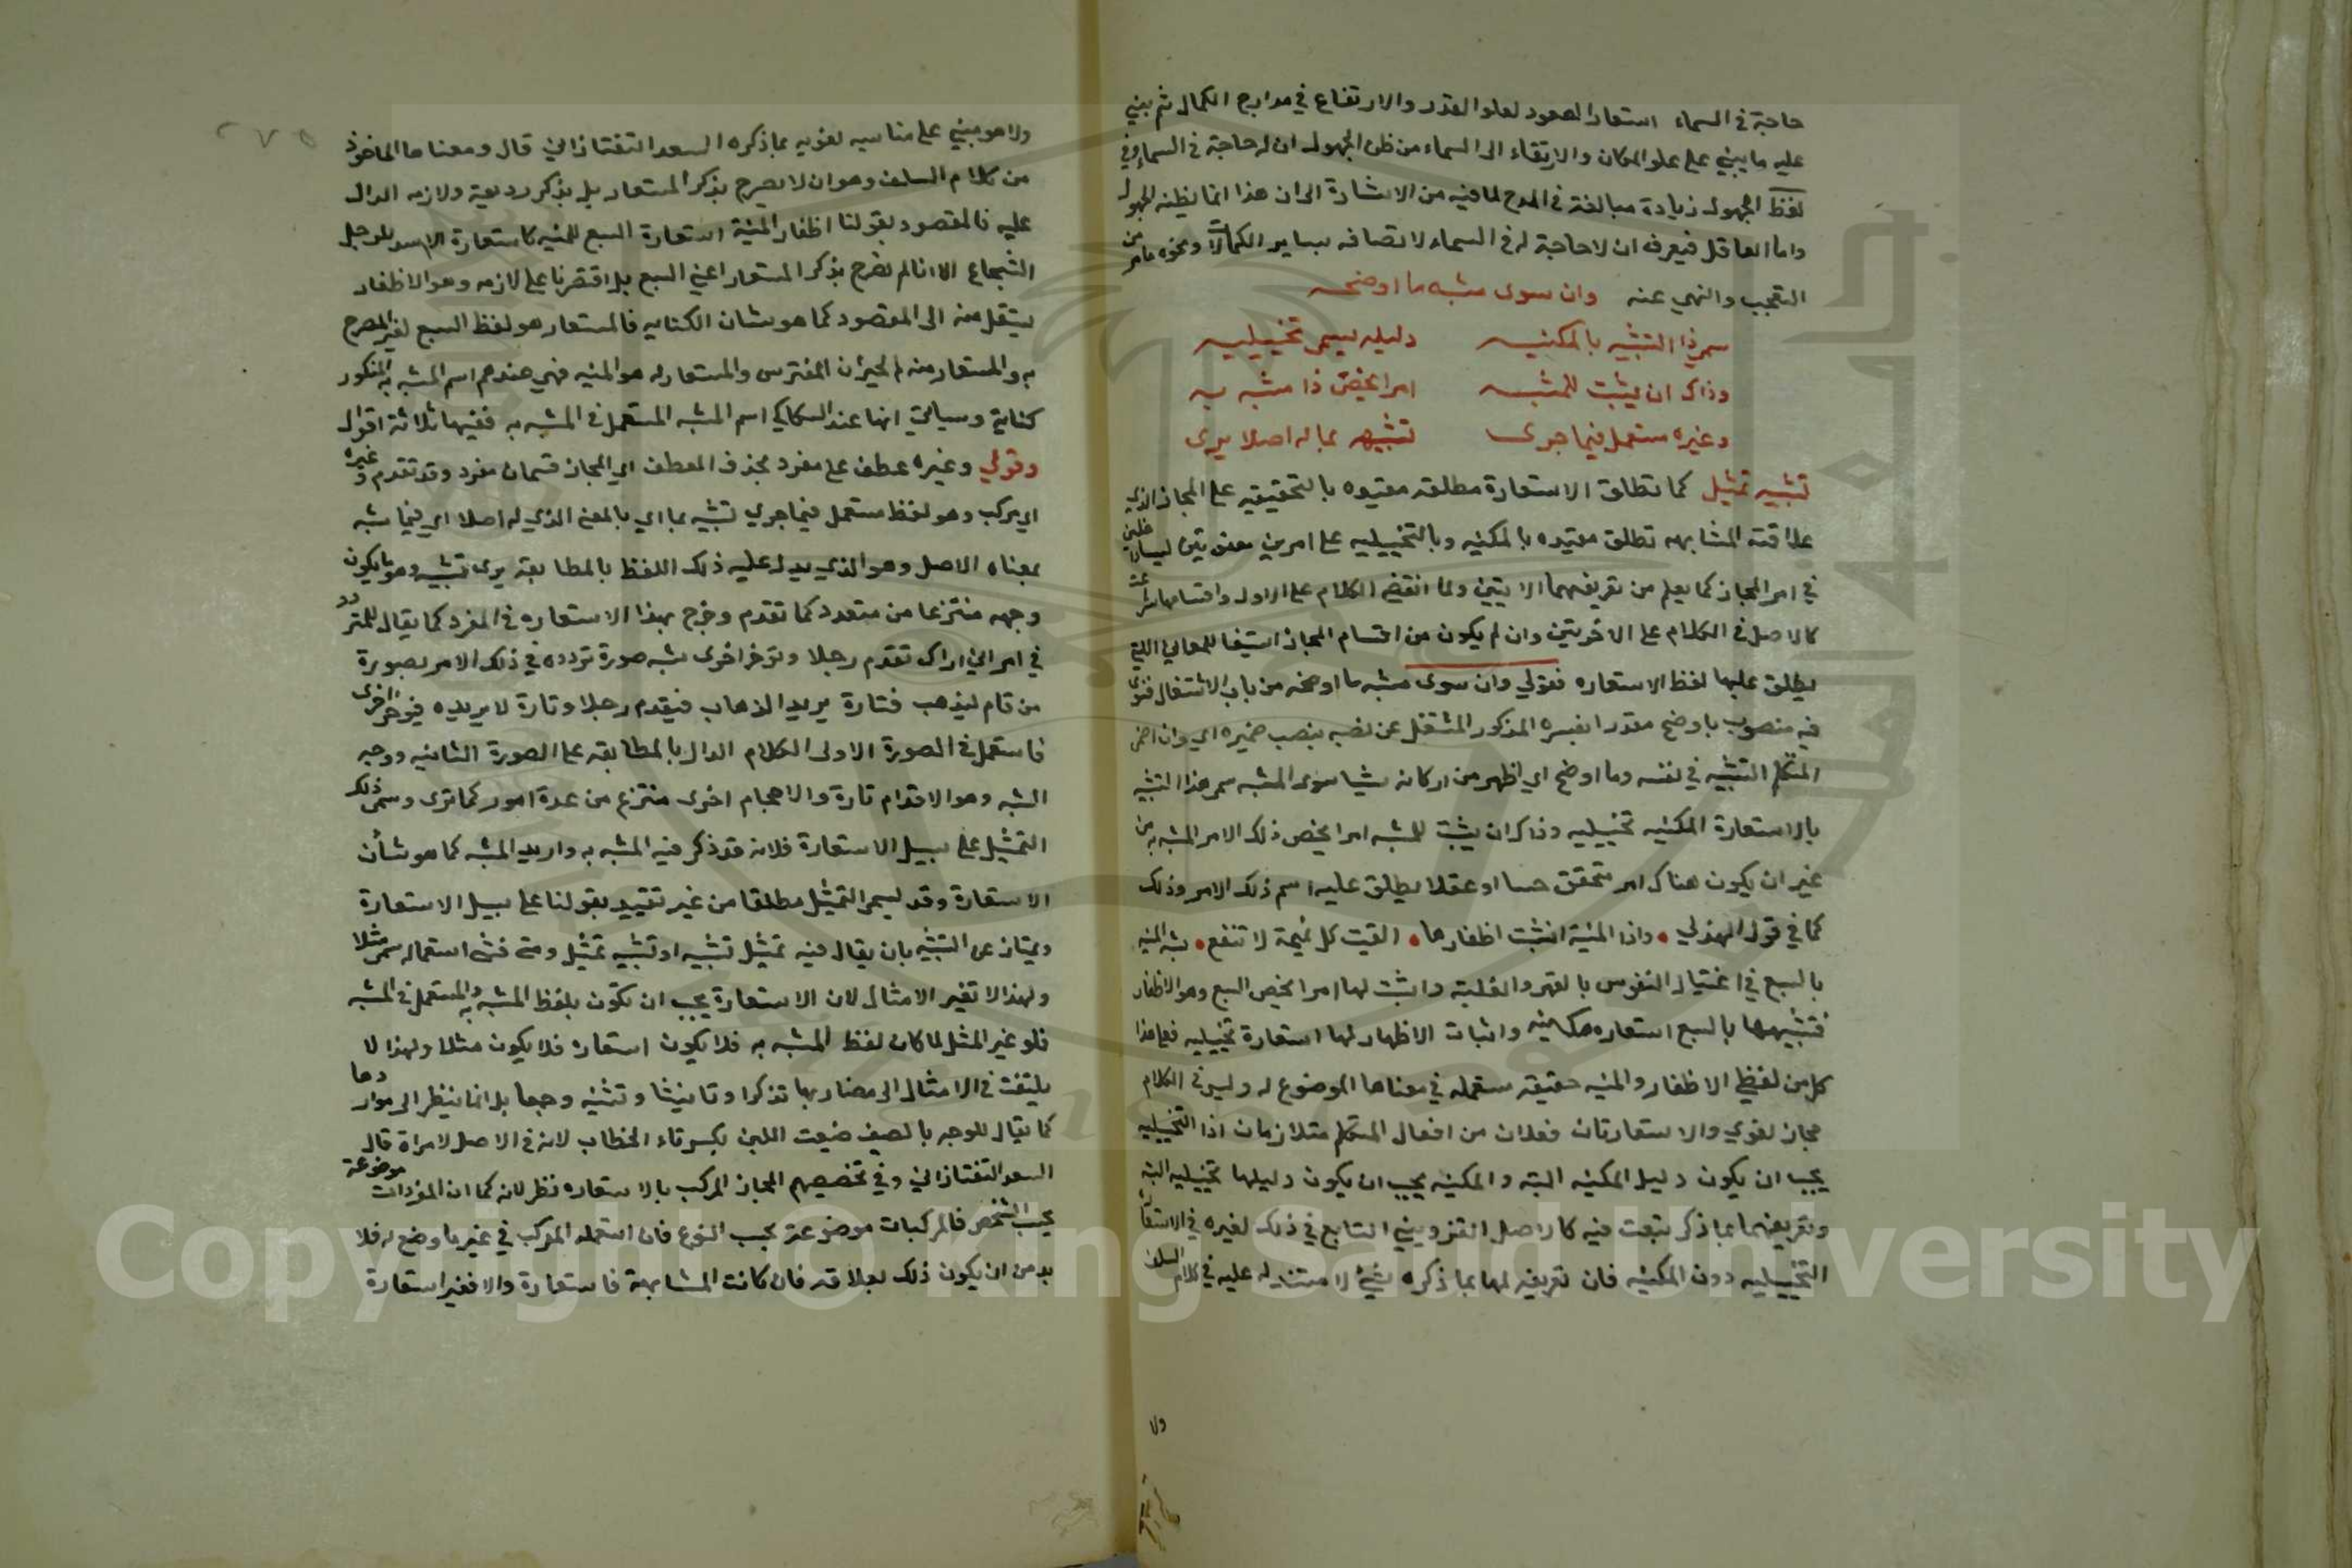 حاجة في السماء استعار الصعود لعلو القدر والارتفاع في مدارج الكمال ثم بني
عليه ما يبني على علو المكان والارتقاء الى السماء من ظن الجهول ان له حاجة في السماء وفي
لفظ الجهول زيادة مبالغة في المدح لما فيه من الاشارة الى ان هذا انما يظنه الجهول
واما العاقل فيعرف ان لا حاجة له في السماء لاتصافه بساير الكمالات ونحوه ما مر من
التعجب والنهي عنه وان سوى مشبه ما اوضحه
سم ذا التشبيه بالمكنيه دليله يسمى تخييليه
وذاك ان يثبت للمشبه امرا يخص ذا مشبه به
وغيره مستعمل فيما جرى تشبيهه بما له اصلا يرى
تشبيه تمثيل كما تطلق الاستعارة مطلقه مقيده بالتحقيقيه على المجاز الذي
علاقته المشابهه تطلق مقيده بالمكنيه وبالتخييليه على امرين معنويين ليسا داخلين
في امر المجاز كما يعلم من تعريفهما الاتيين ولما انقضى الكلام على الاول واقسامها شرعت
كالاصل في الكلام على الاخريتين وان لم يكون من اقسام المجاز استيفا للمعاني التي
يطلق عليها لفظ الاستعاره فقولي وان سوى مشبه ما اوضحه من باب الاشتغال فسوى
فيه منصوب باوضح مقدرا يفسره المذكور المشتغل عن نصبه بنصب ضميره اي وان اضمر
المتكلم التشبيه في نفسه وما اوضح اي اظهر من اركانه شيا سوى المشبه سم هذا التشبيه
بالاستعارة المكنيه تخييليه وذاك ان يثبت للمشبه امرا يخص ذلك الامر المشبه به من
غير ان يكون هناك امر متحقق حسا او عقلا يطلق عليه اسم ذلك الامر وذلك
كما في قول الهذلي • واذا المنية انشبت اظفارها • القيت كل تميمة لا تنفع • شبه المنيه
بالسبع في اغتيال النفوس بالقهر والغلبة واثبت لها امرا يخص السبع وهو الاظفار
فتشبيهها بالسبع استعاره مكنيه واثبات الاظهار لها استعارة تخييليه فعلى هذا
كل من لفظي الاظفار والمنيه حقيقه مستعمله في معناها الموضوع له وليس في الكلام
مجاز لغوي والاستعارتان فعلان من افعال المتكلم متلازمان اذا التخييليه
يجب ان يكون دليل المكنيه البته والمكنيه يجب ان يكون دليلها تخييليه البته
وتعريفهما بما ذكر تبعت فيه كالاصل القزويني التابع في ذلك لغيره في الاستعا
التخييليه دون المكنيه فان تعريفه لها بما ذكره شيء لا مستند له عليه في كلام السلف
ولا
ولا هو مبني على مناسبه لغويه بما ذكره السعد التفتازاني قال ومعناها الماخوذ
من كلام السلف وهو ان لا يصرح بذكر المستعار بل بذكر رديفه ولازمه الدال
عليه فالمقصود بقولنا اظفار المنية استعارة السبع للمنيه كاستعارة الاسد للرجل
الشجاع الا انا لم نصرح بذكر المستعار اعني السبع بل اقتصرنا على لازمه وهو الاظفار
لينتقل منه الى المقصود كما هو شان الكنايه فالمستعار هو لفظ السبع لغير المصرح
به والمستعار منه الحيوان المفترس والمستعار له هو المنيه فهي عندهم اسم المشبه به المذكور
كناية وسياتي انها عند السكاكي اسم المشبه المستعمل في المشبه به ففيها ثلاثة اقوال
وقولي وغيره عطف على مفرد بحذف العطف اي المجاز قسمان مفرد وقد تقدم وغيره
اي مركب وهو لفظ مستعمل فيما جرى تشبيه بما اي بالمعنى الذي له اصلا اي فيما شبه
بمعناه الاصل وهو الذي يدل عليه ذلك اللفظ بالمطابقه يرى تشبيه وهو ما يكون
وجهه منتزعا من متعدد كما تقدم وخرج بهذا الاستعاره في المفرد كما يقال للمتردد
في امر اني اراك تقدم رجلا وتؤخر اخرى شبه صورة تردده في ذلك الامر بصورة
من قام ليذهب فتارة يريد الذهاب فيقدم رجلا وتارة لا يريده فيؤخر اخرى
فاستعمل في الصورة الاولى الكلام الدال بالمطابقه على الصورة الثانيه ووجه
الشبه وهو الاقدام تارة والاحجام اخرى منتزع من عدة امور كما ترى وسمى ذلك
التمثيل على سبيل الاستعارة فلانه قد ذكر فيه المشبه به واريد المشبه كما هو شأن
الاستعارة وقد يسمى التمثيل مطلقا من غير تقييد بقولنا على سبيل الاستعارة
ويمتاز عن التشبيه بان يقال فيه تمثيل تشبيه او تشبيه تمثيل ومتى فشى استعماله سمى مثلا
ولهذا لا تغير الامثال لان الاستعارة يجب ان تكون بلفظ المشبه به والمستعمل في المشبه
فلو غير المثل لما كان لفظ المشبه به فلا يكون استعاره فلا يكون مثلا ولهذا لا
يلتفت في الامثال الى مضاربها تذكرا وتانيثا وتثنيه وجمعا بل انما ينظر الى مواردها
كما يقال للرجل بالصيف ضيعت اللبن بكسر تاء الخطاب لانه في الاصل لامراة قال
السعد التفتازاني وفي تخصيصهم المجاز المركب بالاستعاره نظر لانه كما ان المفردات موضوعة
بحسب الشخص فالمركبات موضوعة بحسب النوع فان استعمل المركب في غير ما وضع له فلا
بد من ان يكون ذلك بعلاقه فان كانت المشابهة فاستعارة والا فغير استعارة